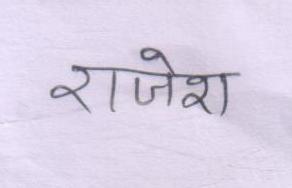 राजेश